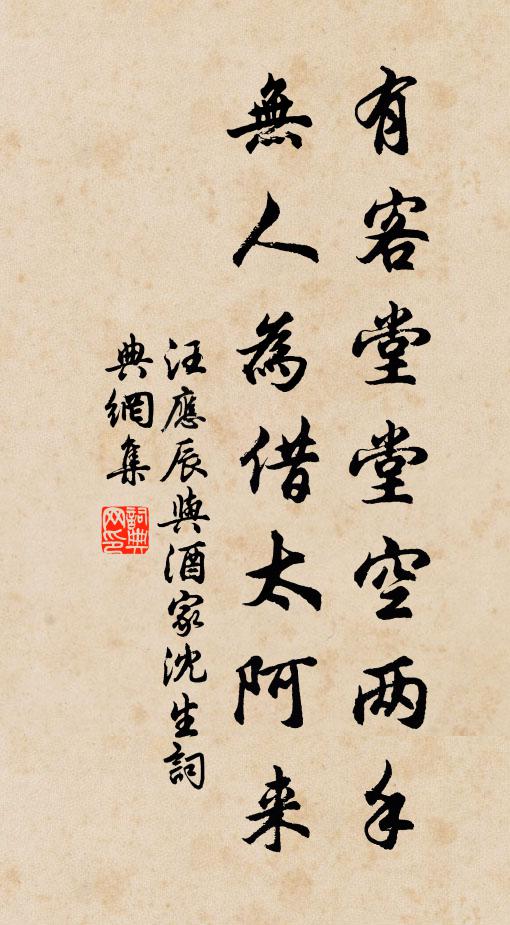 有客堂堂空两手
無人為借太阿来
汪應辰與酒家沈生詞
典網集
詞典網印